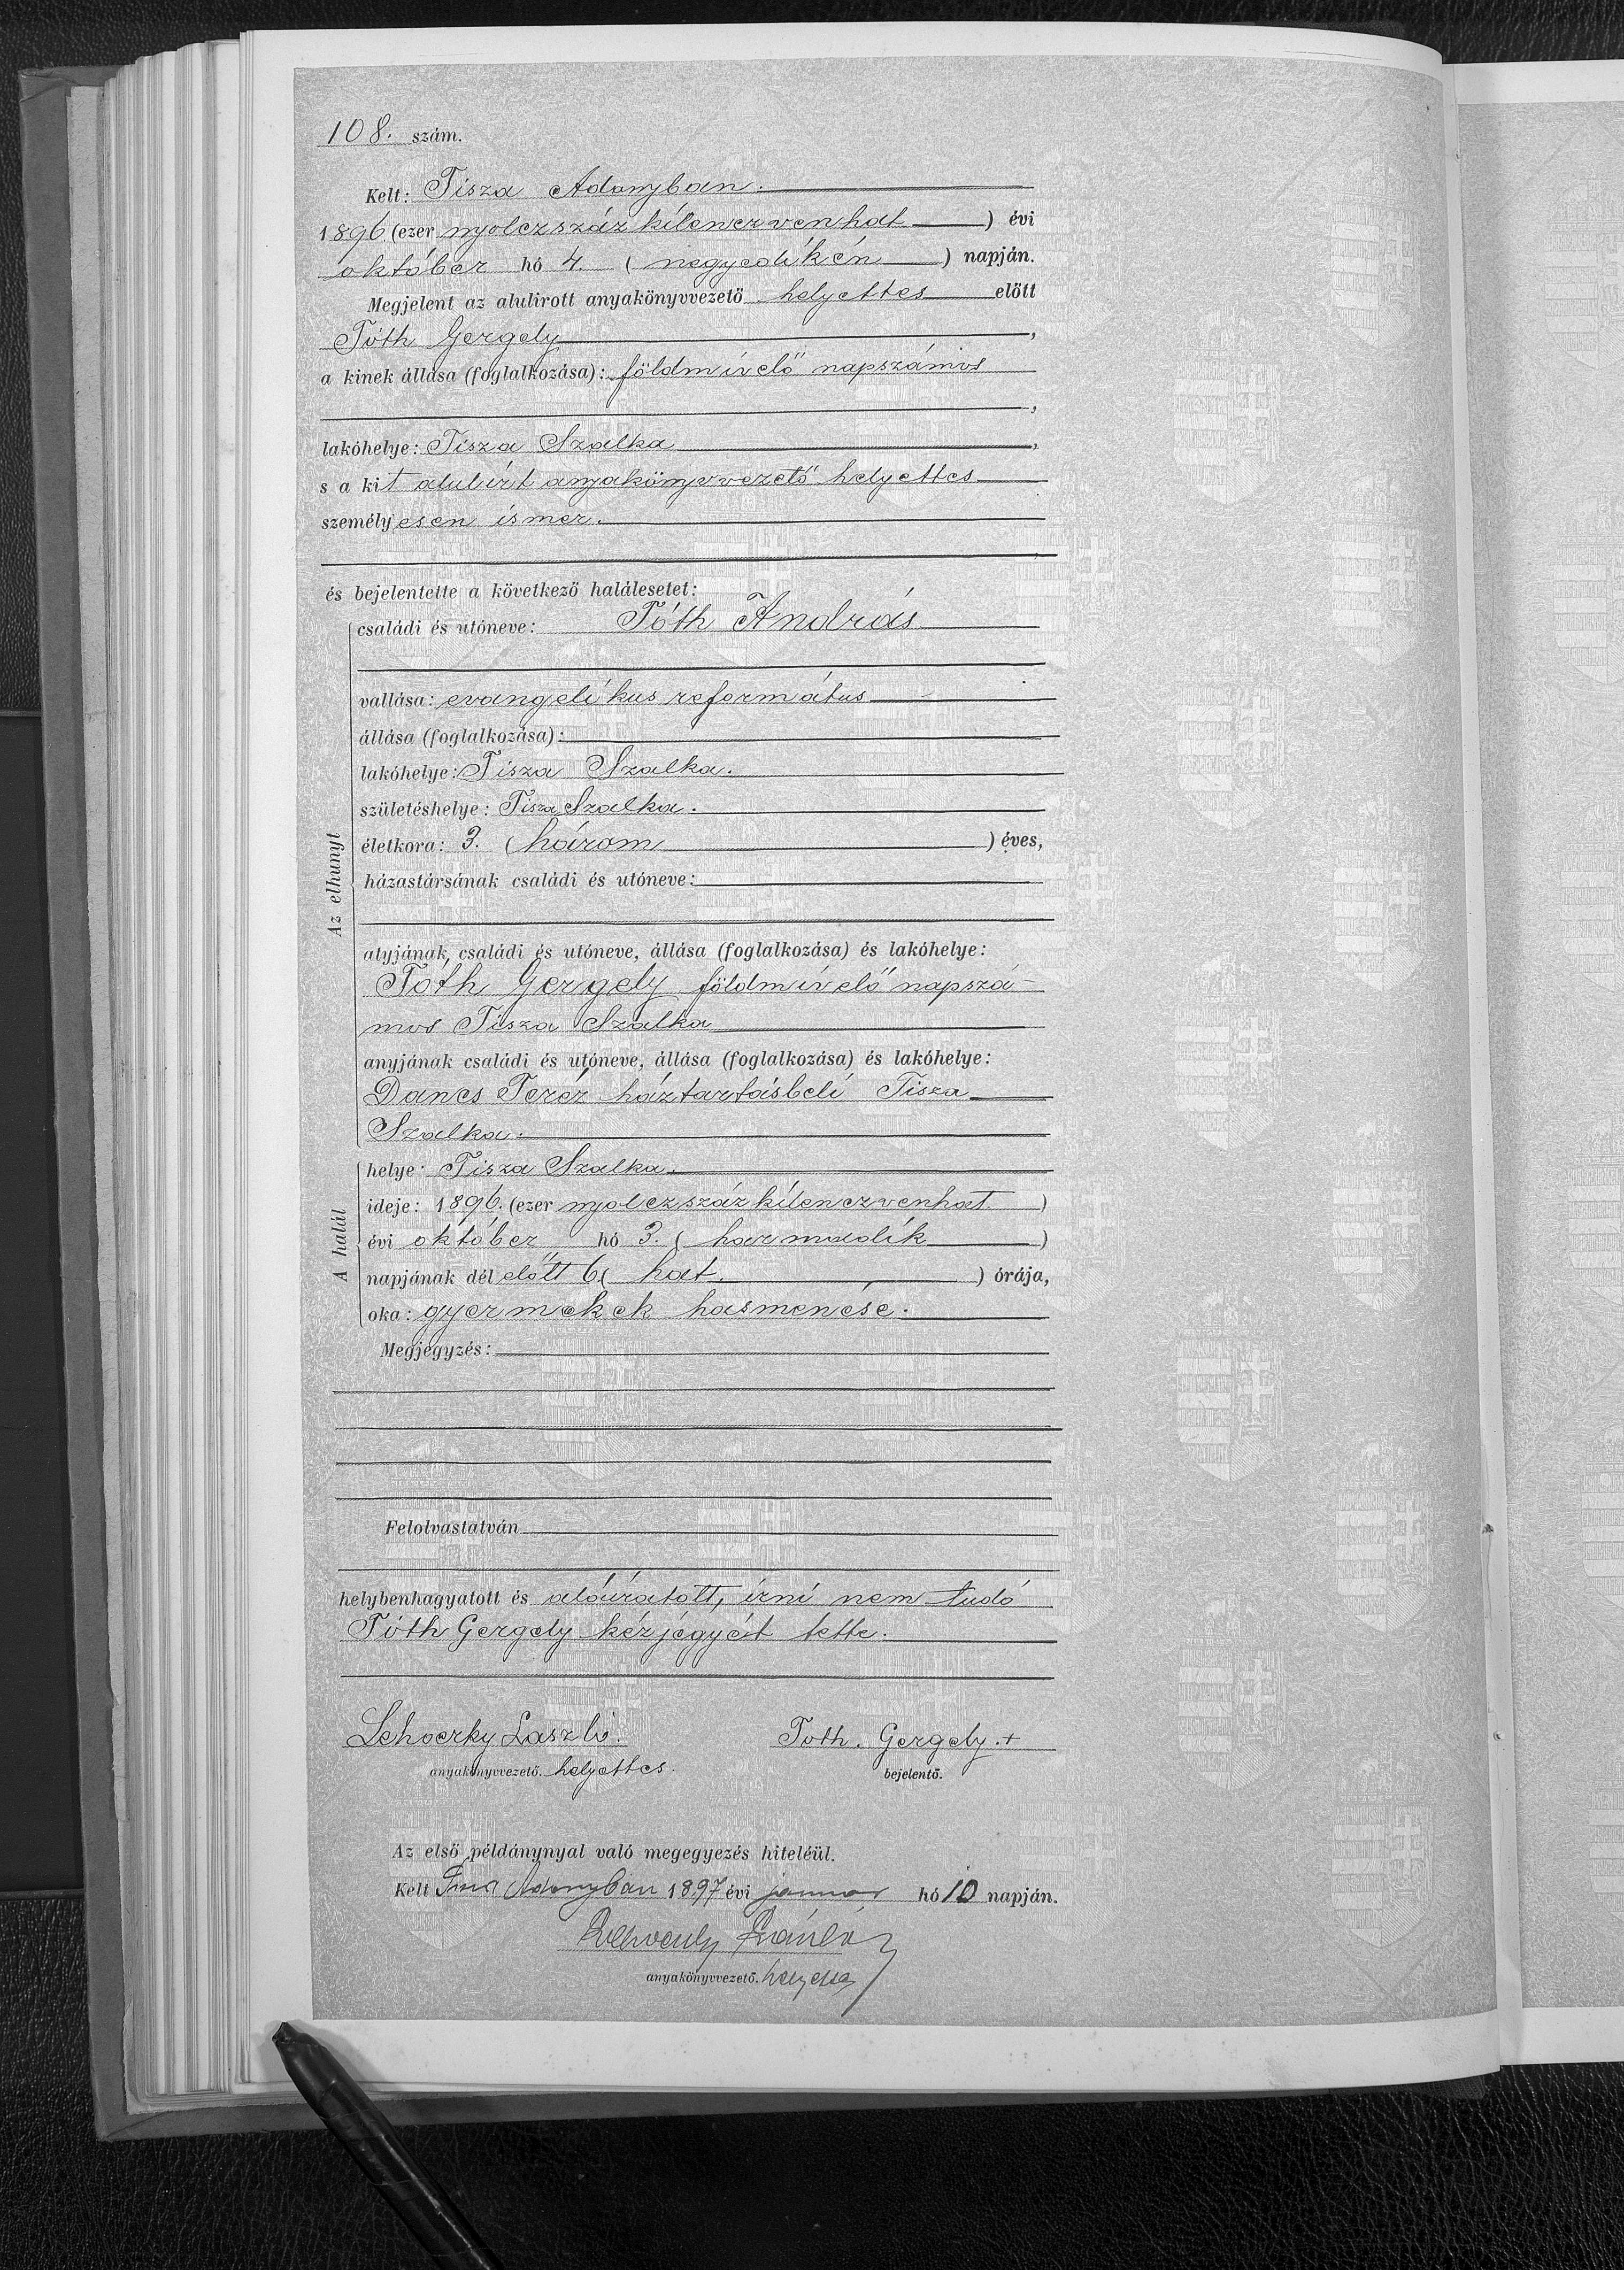 108. szám.
Kelt: Tisza Adonyban.
1896 (ezer nyolczszáz kilenczvenhat) évi
október hó 4. (negyedikén) napján.
Megjelent az alulirott anyakönyvvezető helyettes előtt
Tóth Gergely,
a kinek állása (foglalkozása): földmívelő napszámos
,
lakóhelye: Tisza Szalka,
s a kit alulírt anyakönyvvezető helyettes
személyesen ismer.
és bejelentette a következő halálesetet:
Az elhunyt
családi és utóneve: Tóth András
vallása: evangelikus református
állása (foglalkozása):
lakóhelye: Tisza Szalka.
születéshelye: Tisza Szalka.
életkora: 3. (három) éves,
házastársának családi és utóneve:
atyjának családi és utóneve, állása (foglalkozása) és lakóhelye:
Tóth Gergely földmívelő napszá-
mos Tisza Szalka
anyjának családi és utóneve, állása (foglalkozása) és lakóhelye:
Dancs Teréz háztartásbeli Tisza
Szalka.
A halál
helye: Tisza Szalka.
ideje: 1896. (ezer nyolczszáz kilenczvenhat)
évi október hó 3. (harmadik)
napjának dél előtt 6 (hat.) órája,
oka: gyermekek hasmenése.
Megjegyzés:
Felolvastatván
helybenhagyatott és aláíratott, írni nem tudó
Tóth Gergely kézjégyét tette.
Lehoczky László. Toth. Gergely. +
anyakönyvvezető. helyettes. bejelentő.
Az első példánynyal való megegyezés hiteléül.
Kelt Tisza Adonyban 1897 évi január hó 10 napján.
Lehoczky László
anyakönyvvezető. helyettes